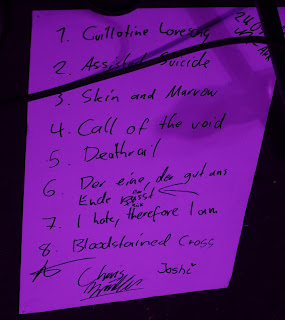 1. Guillotine Lovesong
2. Assisted Suicide
3. Skin and Marrow
4. Call of the void
5. Deathrail
6. Der eine, der gut ans
Ende passt
7. I hate, therefore I am
8. Bloodstained Cross
Chris
Joshi